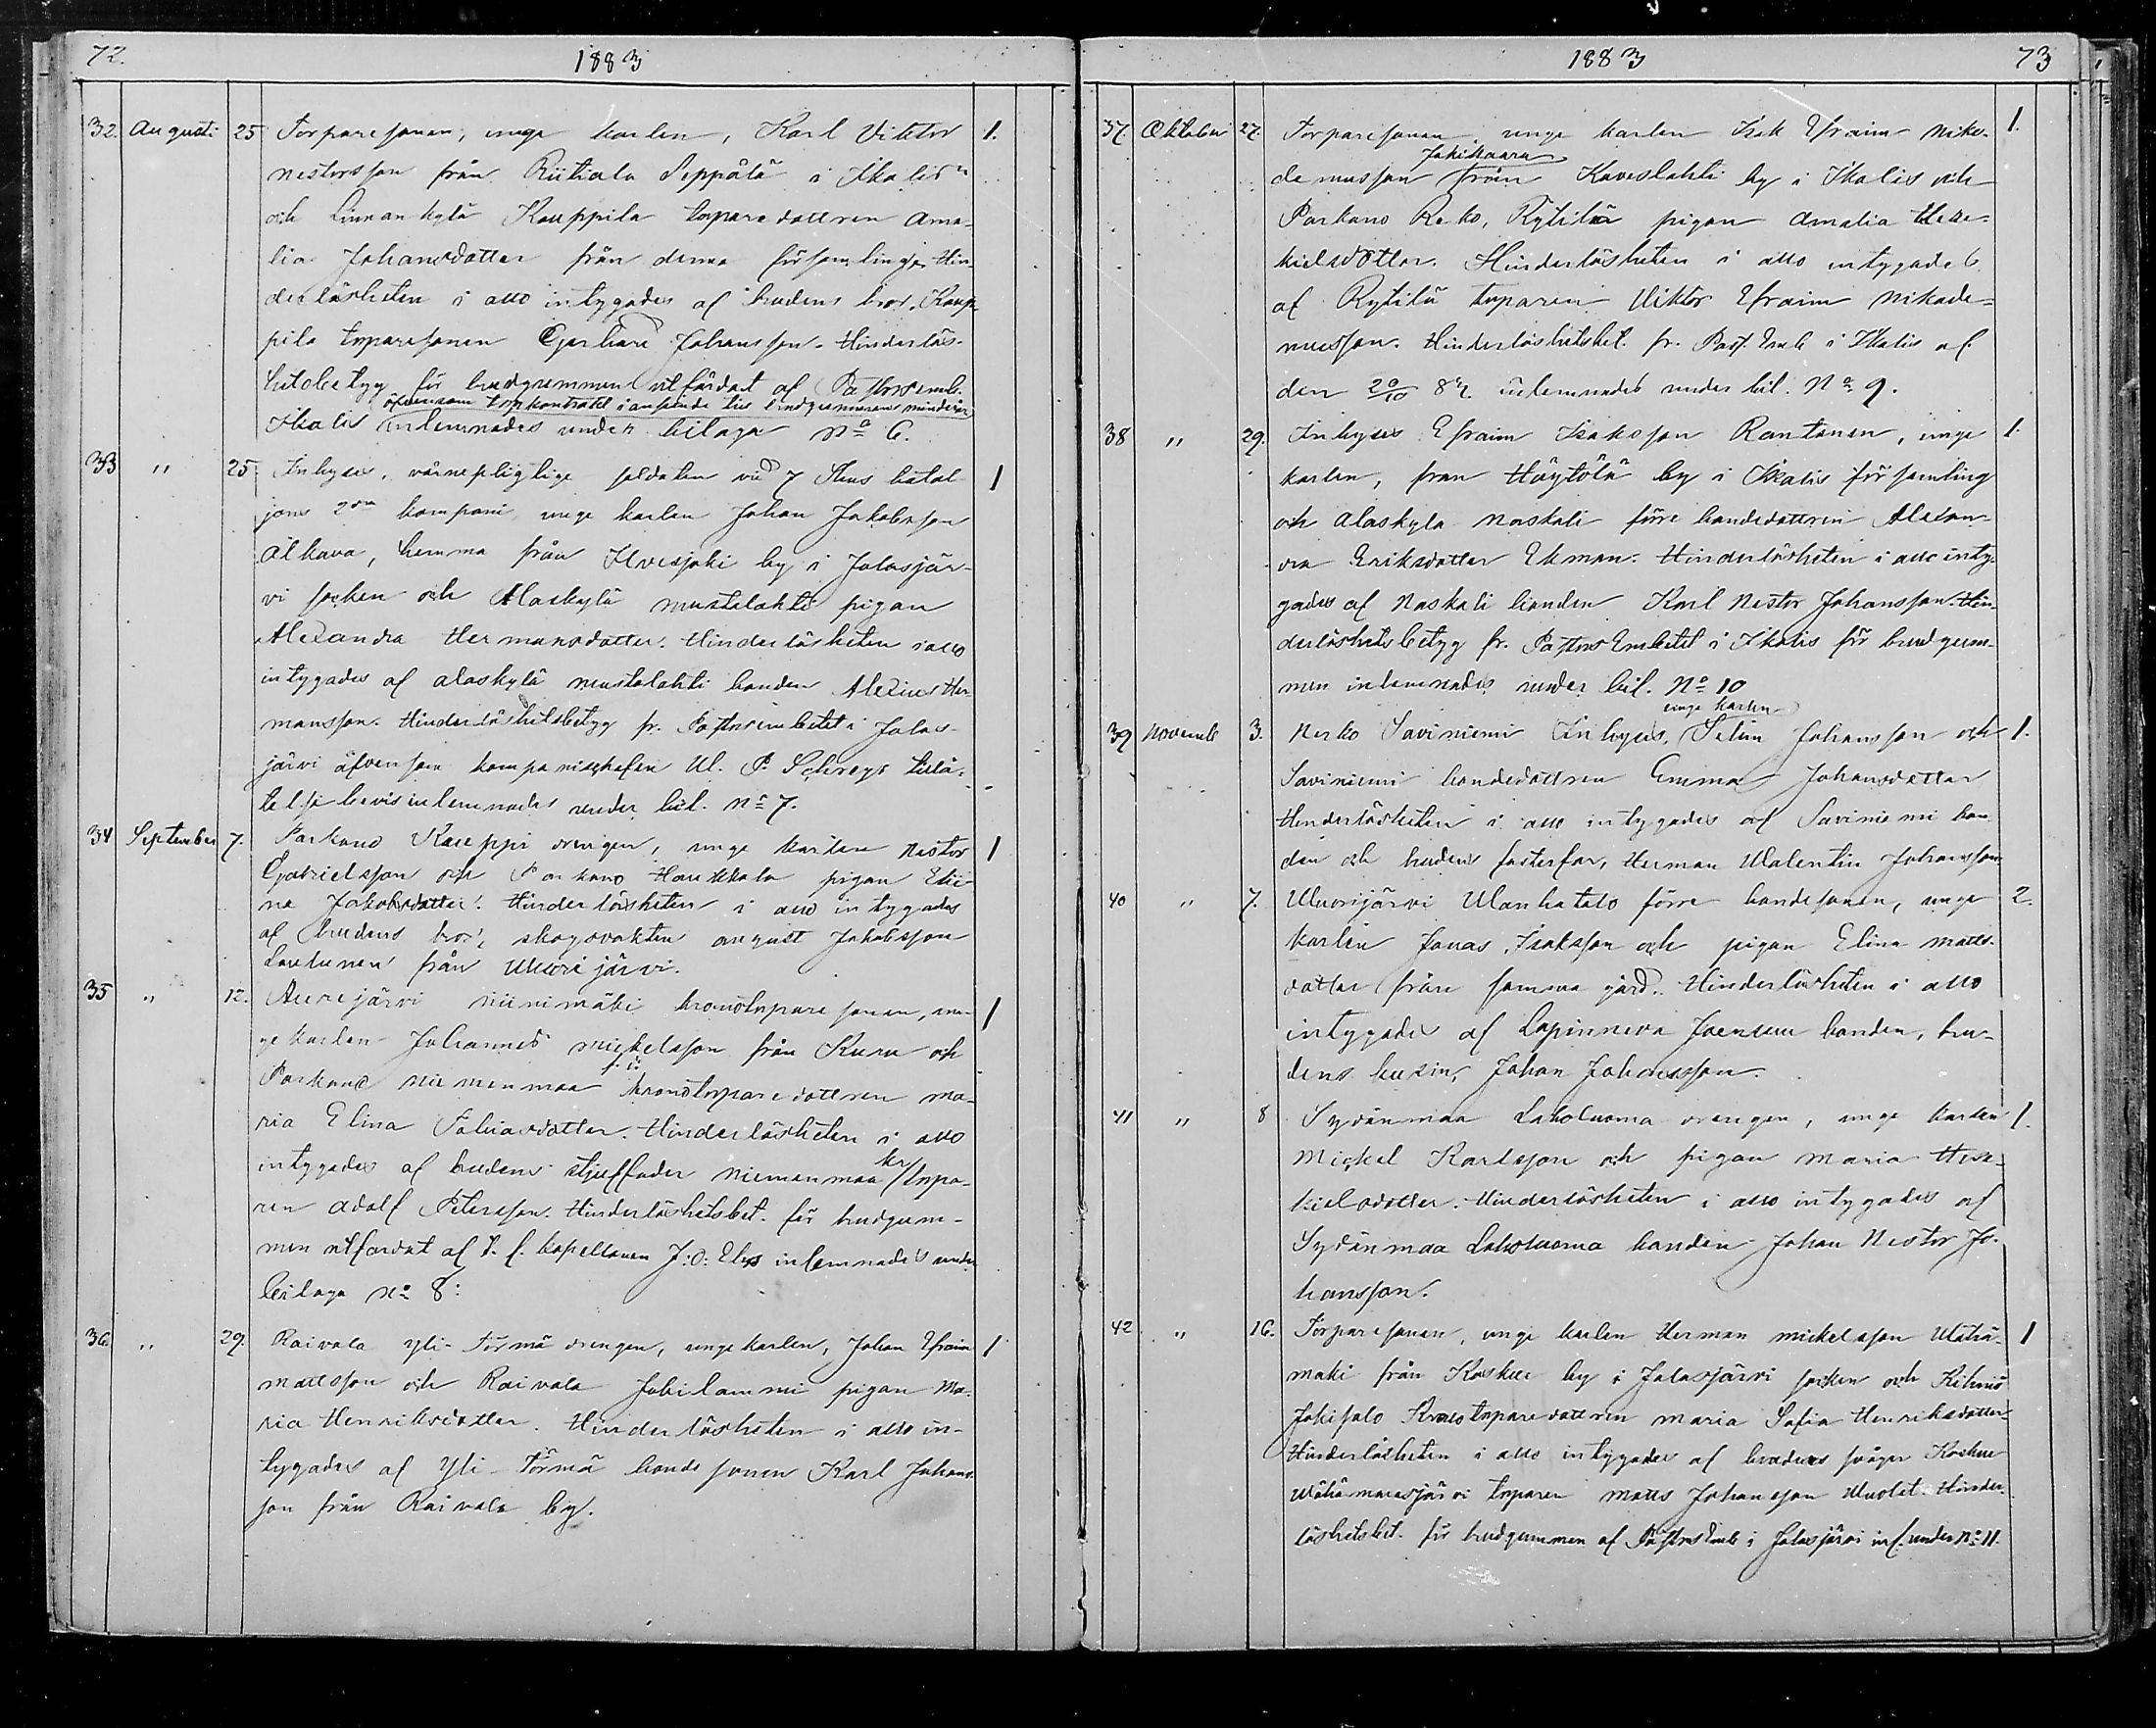 72.
1883
32. Augusti 25 Torparesonen, unge karlen, Karl Viktor 1.
nestorsson från Riitiala Seppälä i Ikalis
och Linnankylä Kauppila torparedottren Ama-
lia Johansdotter från denna församling. Hin-
derlösheten i allo intygades af brudens bror, Kaup-
pila torparesonen Gerhard Johansson. Hinderlös-
hetsbetyg för brudgummen utfärdat af Pastorsemb.
äfvensom torpkontrakt i anseende till brudgummens minderår
Ikalis inlemnades under bilaga No 6.
33 " 25 Inhyses, värnepligtige soldaten vid 7 Skus batal- 1
jons 2dra kompani, unge karlen Johan Jakobsson
Alkava, hemma från Ilvesjoki by i Jalasjär-
vi socken och Alaskylä mustalahti pigan
Alexandra Hermansdotter. Hinderlösheten i allo
intygades af alaskylä mustalahti bonden Alexius Her-
mansson. Hinderlöshetsbetyg fr. Pastorsembetet i Jalas-
järvi äfvensom kompanichefen Ul. P. Schreys tillå-
telsebevis inlemnades under bil. No 7.
34 September 7. Parkano Kauppi drengen, unge karlen Nestor 1
Gabrielsson och Parkano pigan Elii-
na Jakobsdotter. Hinderlösheten i allo intygades
af brudens bror, skogsvakten august Jakobsson
från Wuorijärvi.
35 " 12. Aurejärvi niinimäki kronotorparesonen, un- 1
ge karlen Johannes mickelsson från Kuru och
Parkano niemenmaa f. d. kronotorparedottren ma-
ria Elina Tobiasdotter. Hinderlösheten i allo
intygades af brudens stjuffader niemenmaa kr torpa-
ren adolf Petersson. Hinderlöshetsbet. för brudgum-
men utfärdat af t. f. kapellanen J. O. inlemnades under
bilaga No 8:
36 " 29. Raivala yli-Törmä drengen, unge karlen, Johan Efraim 1
mattsson och Raivala Jokilammi pigan Ma-
ria Henriksdotter. Hinderlösheten i allo in-
tygades af Yli-Törmä bondesonen Karl Johans-
son från Raivala by.
1883
73
37. Oktober 27. Torparesonen, unge karlen Isak Efraim niko- 1.
demusson från Jokikaara Kaveslahti by i Ikalis och
Parkano Reko, Rytilä pigan Amalia Hese-
kielsdotter. Hinderlösheten i allo intygades
af Rytilä torparen Viktor Efraim nikode-
musson. Hinderlöshetsbet. fr. Past. Emb i Ikalis af
den 20/10 83. inlemnades under bil. No 9.
38 " 29. Inhyses Efraim Isaksson Rantanen, unge 1.
karlen, från Häytölä by i Ikalis församling
och Alaskylä naskali förre bondedottren Alexan-
dra Eriksdotter Ekman. Hinderlösheten i allo inty-
gades af Naskali bonden Karl Nestor Johansson. Hin-
derlöshetsbetyg fr. Pastors Embetet i Ikalis för brudgum-
men inlemnades under bil. No 10
39 Novemb 3. Nerko Saviniemi Inhyses, unge karlen Selim Johansson och 1.
Saviniemi bondedottren Emma Johansdotter
Hinderlösheten i allo intygades af Saviniemi bon-
den och brudens fosterfar, Herman Walentin Johansson
40 " 7. Wuorijärvi Wanhatalo förre bondesonen, unge 2.
karlen Jonas Isaksson och pigan Elina matts-
dotter från samma gård. Hinderlösheten i allo
intygades af Lapinneva Joensuu bonden, bru-
dens kusin, Johan Johansson.
41 " 8 Sydänmaa Laholuoma drengen, unge karlen 1.
Mickel Karlsson och pigan Maria Hese-
kielsdotter. Hinderlösheten i allo intygades af
Sydänmaa Laholuoma bonden Johan Nestor Jo-
hansson.
42 " 16. Torparesonen, unge karlen Herman mickelsson Wähä- 1
mäki från Koskue by i Jalasjärvi socken och Kihniö
Jokisalo Kronotorparedottren Maria Sofia Henriksdotter
Hinderlösheten i allo intygades af brudens svåger Koskue
torparen Matts Johansson Hinder-
löshetsbet. för brudgummen af Pastors Emb i Jalasjärvi inl. under No 11.